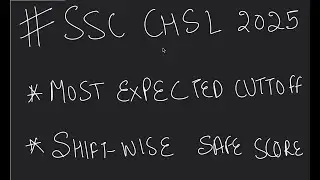 # SSC CHSL 2025
* MOST EXPECTED CUTTOFF
* SHIFT-WISE SAFE SCORE